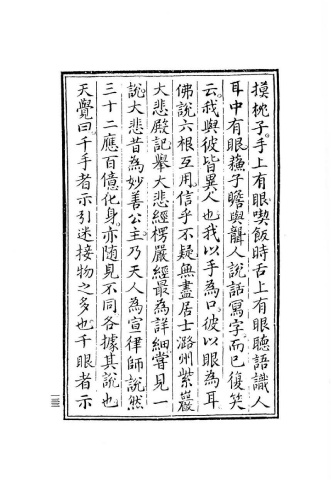 摸枕子。手上有眼。喫飯時舌上有眼。聽語識人。
耳中有眼。蘓子瞻與聾人說話寫字而已。復笑
云。我與彼皆異人也。我以手為口。彼以眼為耳。
佛說六根互用。信乎不疑。無盡居士潞州紫巖
大悲殿記。舉大悲經楞嚴經。最為詳細。嘗見一
說。大悲昔為妙善公主。乃天人為宣律師說。然
三十二應百億化身。亦随見不同。各據其說也。
天覺曰。千手者示引迷接物之多也。千眼者示
一三三